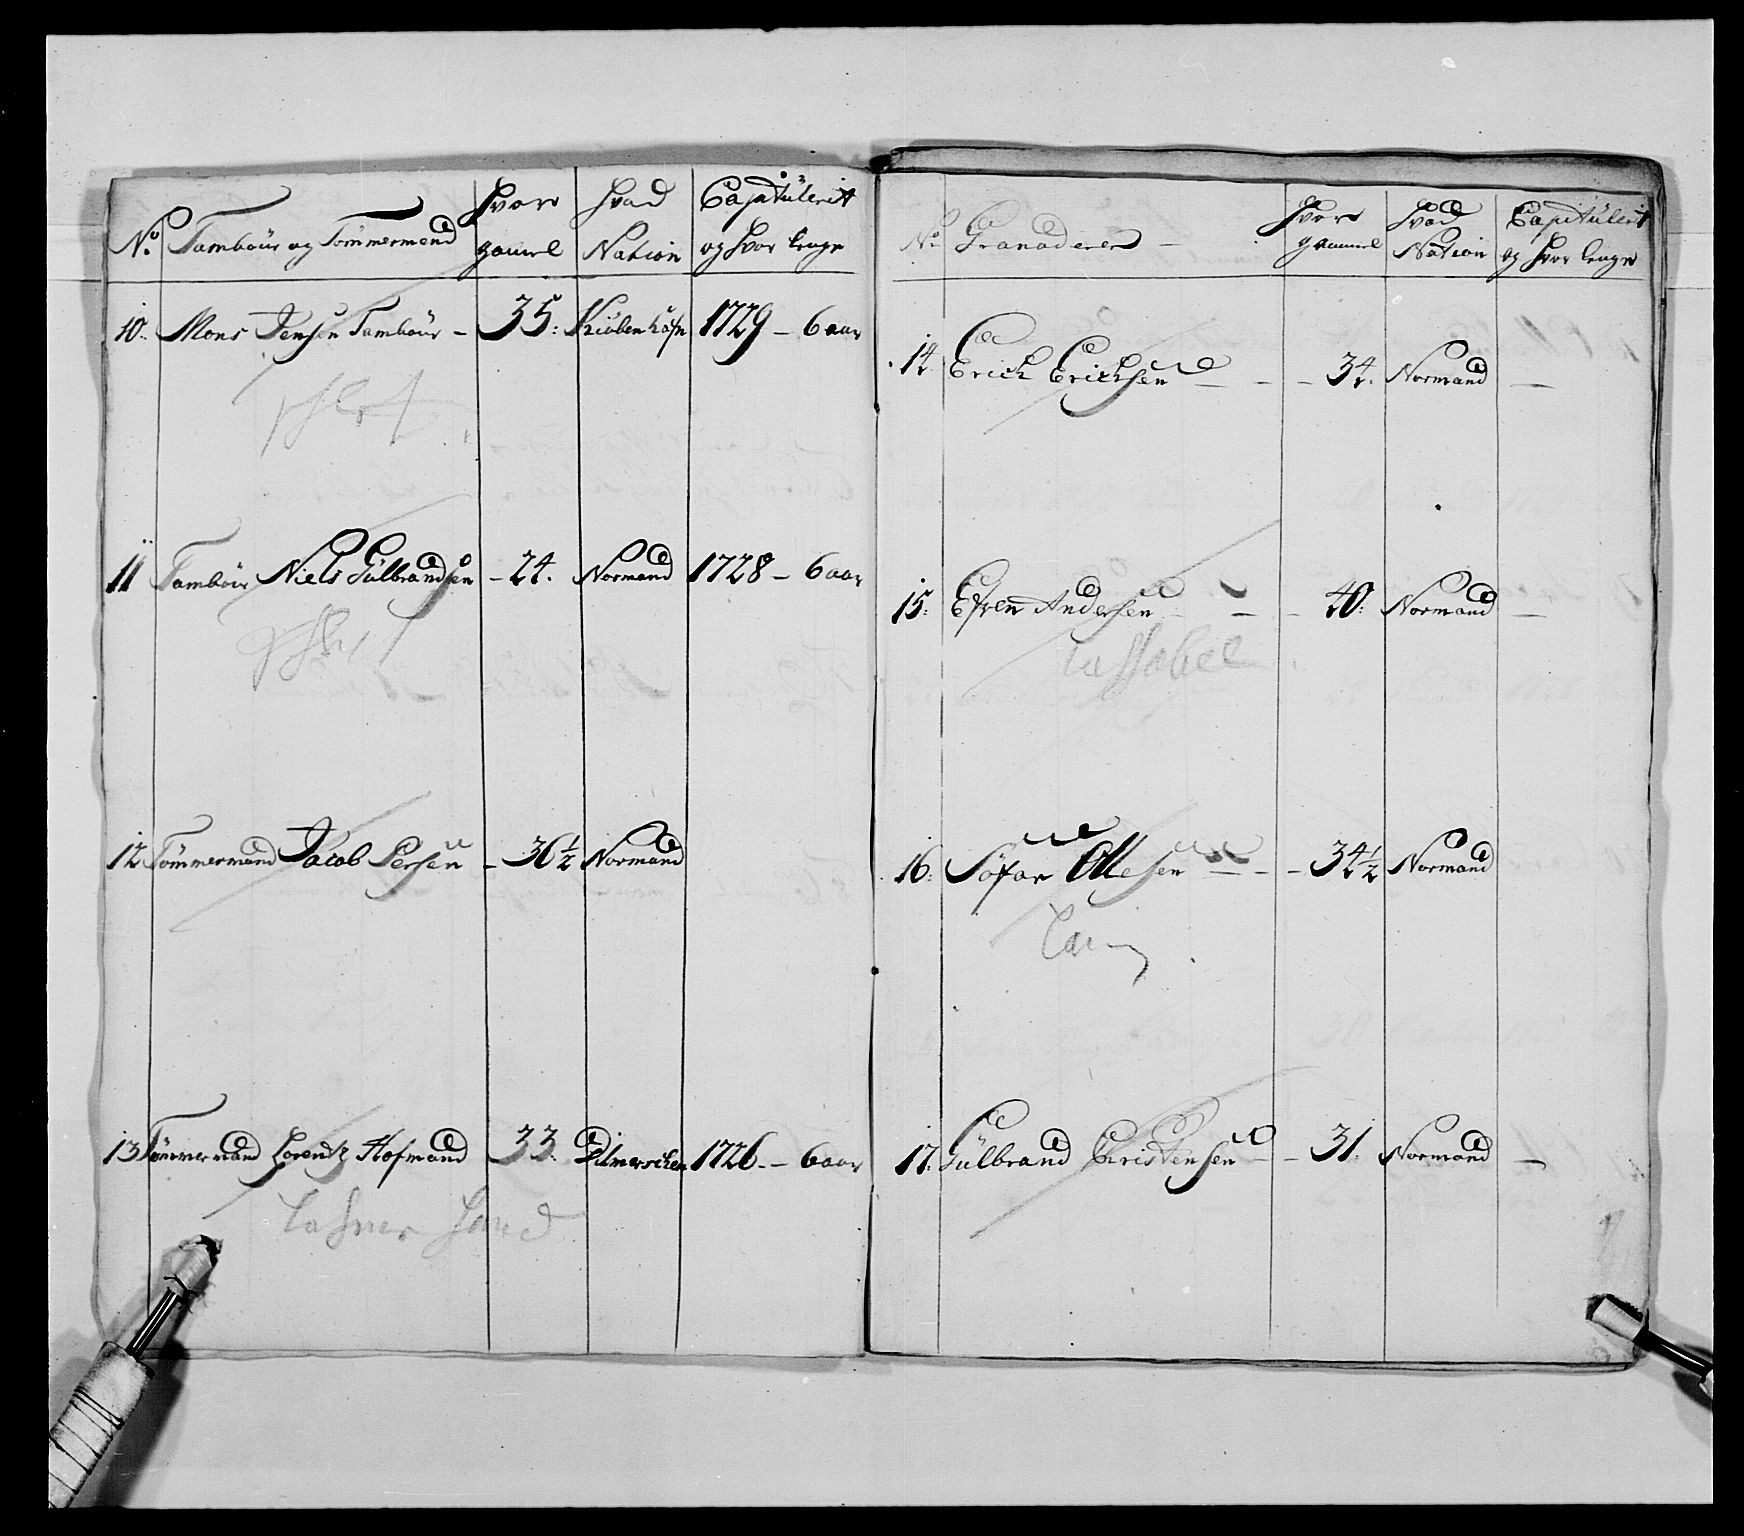 No Tambour og Tömmermand Hvor gamel Hvad Nation Capitülerit og hvor lenge
10. Mons Jensen Tambour - 35: Kiöbenhafn 1729 - 6 aar
11 Tambour Niels Gülbrandsen - 24. Normand 1728 - 6 aar
12 Tömmermand Jacob Persen - 36½ Normand
13 Tömmermand Lorentz Hofmand 33. Ditmerschen 1726. - 6 aar
No Granaderer - Hvor gammel Hvad Nation Capitülerit og hvor lenge
14 Erick Ericksen - - - 34. Normand -
15: Efven Andersen - - 40: Normand -
16: Söfar Ollesen - - - 34½ Normand
17. Gülbrand Christensen - - 31. Normand -